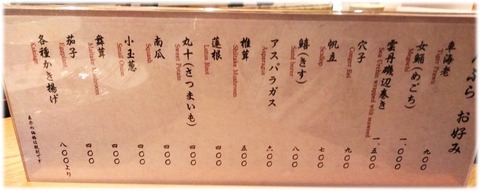 ぷら お好み
車海老 九〇〇
Tiger Prawn
女鯒(めごち) 一、〇〇〇
Megochi
雲丹磯辺巻き 一、五〇〇
Sea Urchin wrapped with seaweed
穴子 九〇〇
Conger Eel
帆立 七〇〇
Scallop
鱚(きす) 八〇〇
Sand borer
アスパラガス 六〇〇
Asparagus
椎茸 五〇〇
Shiitake Mushroom
蓮根 四〇〇
Lotus Root
丸十(さつまいも) 四〇〇
Sweet Potato
南瓜 四〇〇
Squash
小玉葱 四〇〇
Small Onion
舞茸 四〇〇
Maitake Mushroom
茄子 四〇〇
Eggplant
各種かき揚げ 八〇〇より
Kakiage
表示の価格は税別です